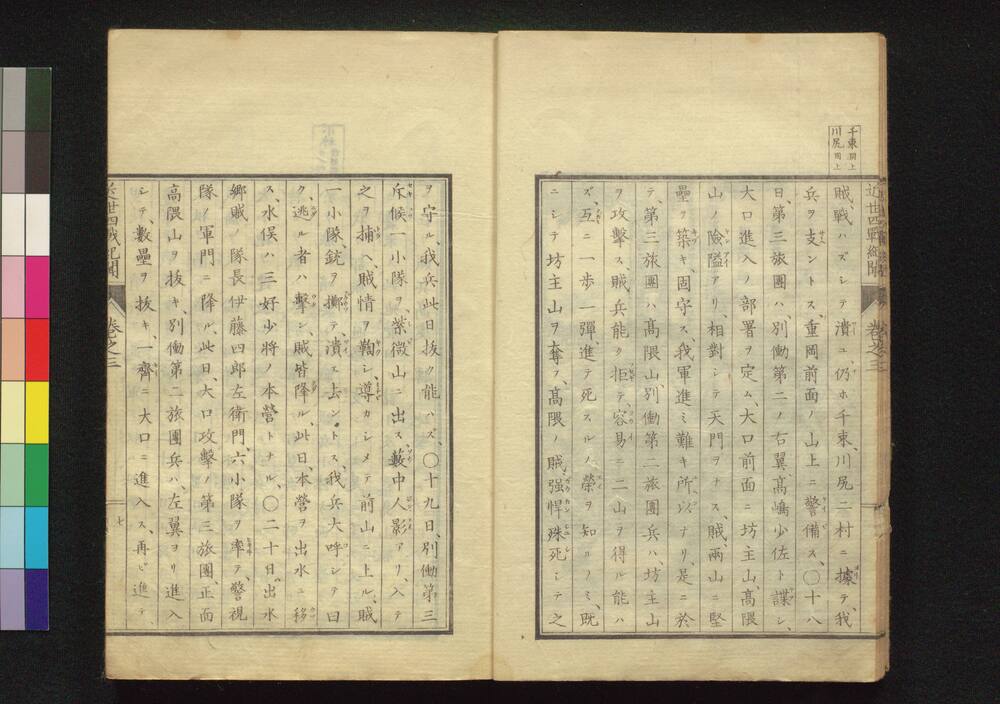 千東 同上
川尻 同上
近世四戰紀聞 卷之三
賊、戰ハズシテ潰ユ仍ホ千東、川尻二村ニ據テ、我
兵ヲ支ントス、重岡前面ノ山上ニ警備ス、〇十八
日、第三旅團ハ、別働第二ノ右翼、髙嶋少佐ト諜シ、
大口進入ノ部署ヲ定ム、大口前面ニ坊主山、髙隈
山ノ險隘アリ、相對シテ天門ヲナス、賊、兩山ニ堅
壘ヲ築キ、固守ス我軍進ミ難キ所以ナリ、是ニ於
テ、第三旅團ハ、髙隈山、別働第二旅團兵ハ、坊主山
ヲ攻擊ス、賊兵能ク拒テ、容易ニ二山ヲ得ル能ハ
ズ、互ニ一歩一彈、進テ死スルノ榮ヲ知ルノミ、既
ニシテ坊主山ヲ奪フ、髙隈ノ賊、强悍殊死シテ之
ヲ守ル、我兵此日拔ク能ハズ、〇十九日、別働第三
斥候一小隊ヲ、紫微山ニ出ス、藪中人影アリ、入テ
之ヲ捕ヘ、賊情ヲ鞫シ、導カシメテ前山ニ上ル、賊
一小隊、銃ヲ擲テ、潰ヘ去ントス、我兵大呼シテ曰
ク、逃ル者ハ擊ン、賊皆降ル、此日、本營ヲ出水ニ移
ス、水俣ハ三好少將ノ本營トナル、〇二十日、出水
鄕賊ノ隊長伊藤四郎左衛門、六小隊ヲ率テ、警視
隊ノ軍門ニ降ル、此日、大口攻擊ノ第三旅團、正面
髙隈山ヲ拔キ、別働第二旅團兵ハ、左翼ヨリ進入
シテ、數壘ヲ拔キ、一齊ニ大口ニ進入ス、再ビ進テ、
近世四戰紀聞 卷之三 七